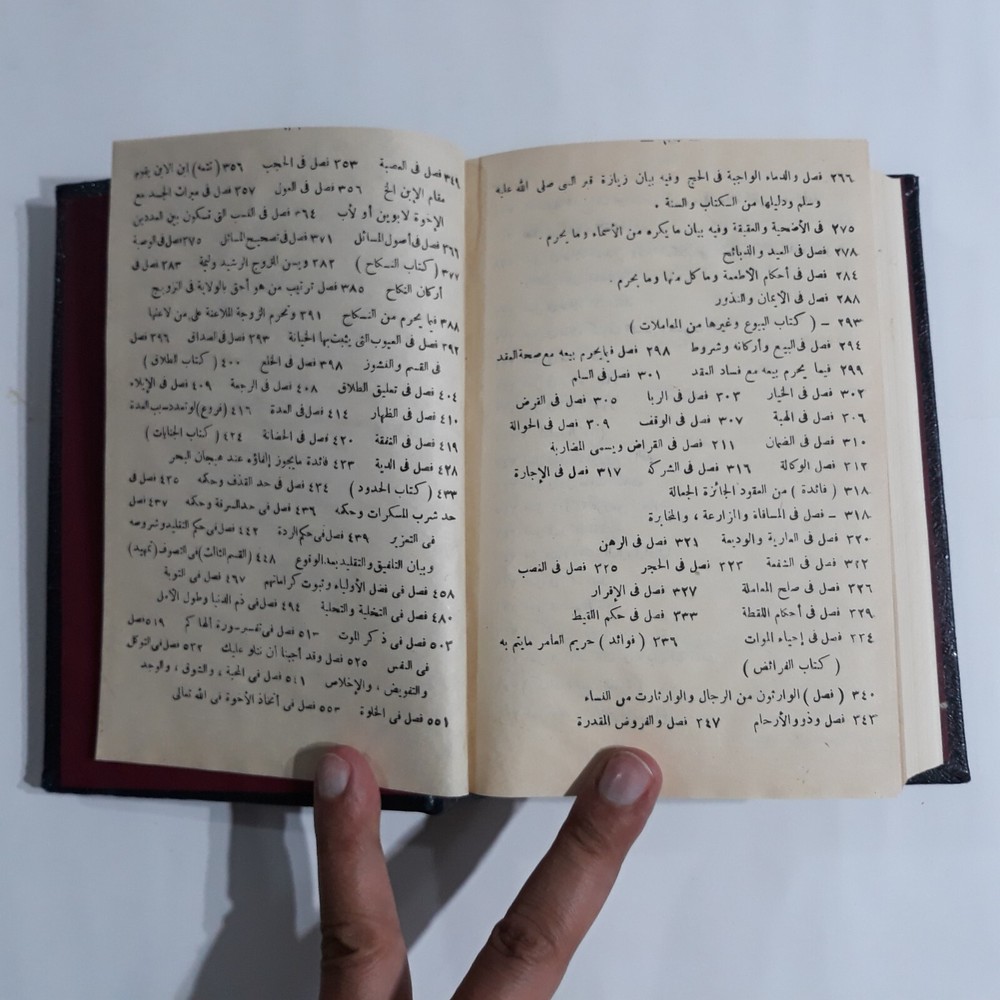 ٢٦٦ فصل والدماء الواجبة فى الحج وفيه بيان زيارة قبر النبى صلى الله عليه
وسلم ودليلها من الكتاب والسنة .
٢٧٥ فى الأضحية والعقيقة وفيه بيان ما يكره من الأسماء وما يحرم .
٢٧٨ فصل فى الصيد والذبائح
٢٨٤ فصل فى أحكام الأطعمة وما كل منها وما يحرم .
٢٨٨ فصل فى الأيمان والنذور
٢٩٣ – ( كتاب البيوع وغيرها من المعاملات )
٢٩٤ فصل فى البيع وأركانه وشروط ٢٩٨ فصل فيما يحرم بيعه مع صحة العقد
٢٩٩ فيما يحرم بيعه مع فساد العقد ٣٠١ فصل فى السلم
٣٠٢ فصل فى الخيار ٣٠٣ فصل فى الربا ٣٠٥ فصل فى القرض
٣٠٦ فصل فى الهبة ٣٠٧ فصل فى الوقف ٣٠٩ فصل فى الحوالة
٣١٠ فصل فى الضمان ٢١١ فصل فى القراض ويسمى المضاربة
٣١٢ فصل الوكالة ٣١٦ فصل فى الشركة ٣١٧ فصل فى الإجارة
٣١٨ ( فائدة ) من العقود الجائزة الجعالة
٣١٨ – فصل فى المساقاة والمزارعة ، والمخابرة
٣٢٠ فصل فى العارية والوديعة ٣٢١ فصل فى الرهن
٣٢٢ فصل فى الشفعة ٣٢٣ فصل فى الحجر ٣٢٥ فصل فى الغصب
٣٢٦ فصل فى صلح المعاملة ٣٢٧ فصل فى الإقرار
٣٢٩ فصل فى أحكام اللقطة ٣٣٣ فصل فى حكم اللقيط
٣٣٤ فصل فى إحياء الموات ٢٣٦ ( فوائد ) حريم العامر ما يتم به
( كتاب الفرائض )
٣٤٠ ( فصل ) الوارثون من الرجال والوارثات من النساء
٣٤٣ فصل وذوو الأرحام ٣٤٧ فصل والفروض المقدرة
٣٤٩ فصل فى العصبة ٣٥٣ فصل فى الحجب ٣٥٦ ( تتمة ) ابن الابن يقوم
مقام الإبن الخ ٣٥٦ فصل فى العول ٣٥٧ فصل فى ميراث الجد مع
الإخوة لابوين أو لأب ٣٦٤ فصل فى النسب التى تكون بين العددين
٣٦٦ فصل فى أصول المسائل ٣٧١ فصل فى تصحيح المسائل ٣٧٥ فصل فى الوصية
٣٧٧ ( كتاب النكاح ) ٣٨٢ ويسن للزوج الرشيد وليمة ٣٨٣ فصل فى
أركان النكاح ٣٨٥ فصل ترتيب من هو أحق بالولاية فى التزويج
٣٨٨ فيما يحرم من النكاح ٣٩١ وتحرم الزوجة الملاعنة على من لاعنها
٣٩٢ فصل فى العيوب التى يثبت بها الخيار ٣٩٣ فصل فى الصداق ٣٩٦ فصل
فى القسم والنشوز ٣٩٨ فصل فى الخلع ٤٠٠ ( كتاب الطلاق )
٤٠٤ فصل فى تعليق الطلاق ٤٠٨ فصل فى الرجعة ٤٠٩ فصل فى الإيلاء
٤١٠ فصل فى الظهار ٤١٤ فصل فى العدة ٤١٦ (فروع) لو تعدد سبب العدة
٤١٩ فصل فى النفقة ٤٢٠ فصل فى الحضانة ٤٢٤ ( كتاب الجنايات )
٤٢٨ فصل فى الدية ٤٢٣ فائدة ما يجوز إلقاؤه عند هيجان البحر
٤٣٣ ( كتاب الحدود ) ٤٣٤ فصل فى حد القذف وحكمه ٤٣٥ فصل فى
حد شرب المسكرات وحكمه ٤٣٦ فصل فى حد السرقة وحكمه ٤٣٧ فصل
فى التعزير ٤٣٩ فصل فى حكم الردة ٤٤٢ فصل فى حكم التقليد وشروطه
وبيان التلفيق والتقليد بعد الوقوع ٤٤٨ (القسم الثالث) فى التصوف (تمهيد)
٤٥٨ فصل فى فضل الأولياء وثبوت كراماتهم ٤٦٧ فصل فى التوبة
٤٨٠ فصل فى التخلية والتحلية ٤٩٤ فصل فى ذم الدنيا وطول الأمل
٥٠٣ فصل فى ذكر الموت ٥١٣ فصل فى تفسير سورة ألهاكم ٥١٩ فصل
فى النفس ٥٢٥ فصل وقد أحببنا أن نتلو عليك ٥٣٢ فصل فى التوكل
والتفويض ، والإخلاص ٥٤١ فصل فى المحبة ، والشوق ، والوجد
٥٥١ فصل فى الخلوة ٥٥٣ فصل فى أتخاذ الأخوة فى الله تعالى